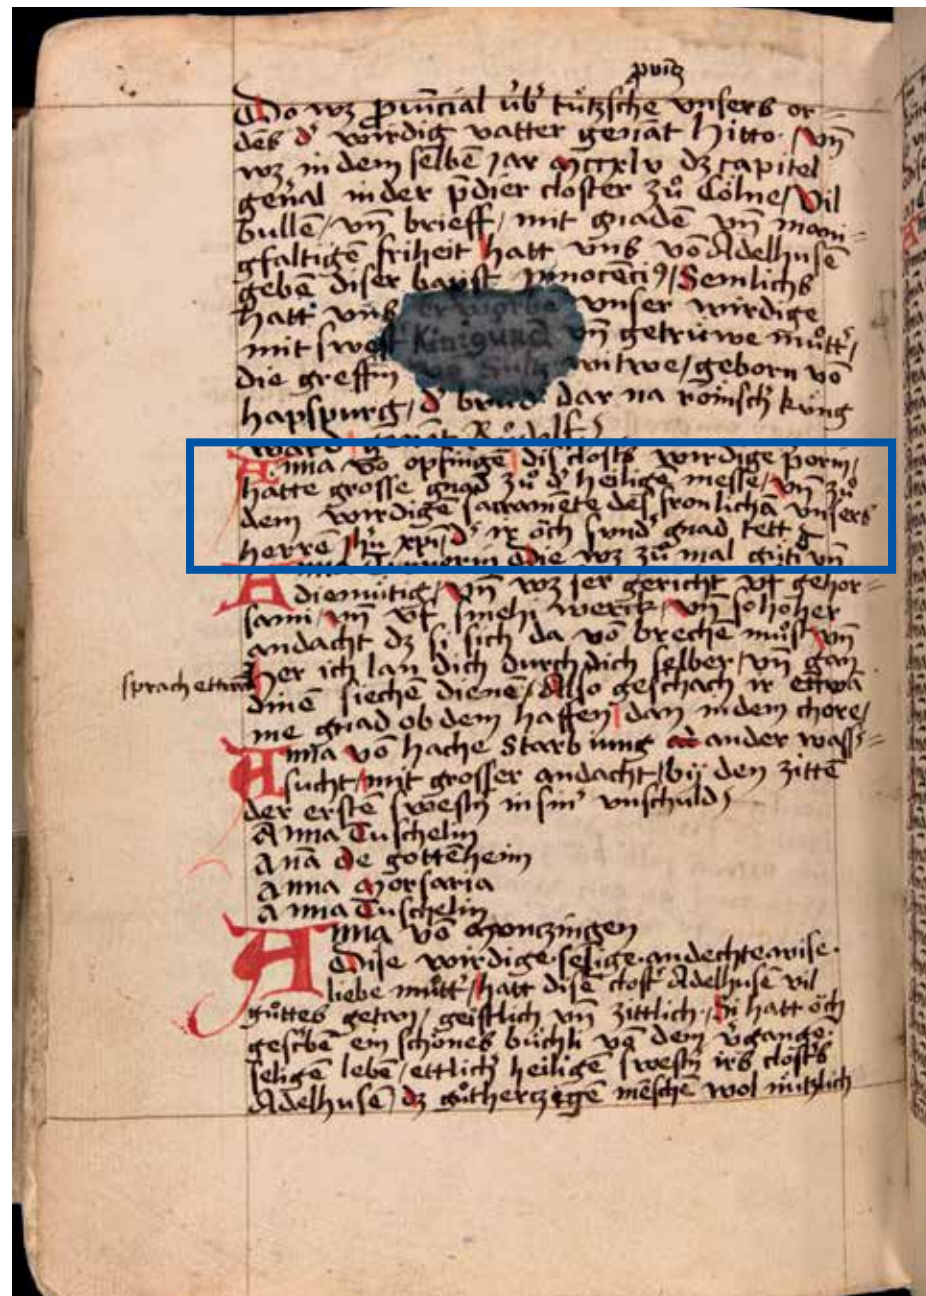 pviṅz
Do wz pruͥncial uͥb' tuͥtzsche vnsers or=
dēs d' wirdig vatter genāt hitto. vn̄
wz in dem selbē jar mccxlv dz capitel
gen̄al in der p̄dier closter zuͦ Cölne/ Vil
bullē/ vn̄ brieff/ mit gnadē vn̄ mani=
gfaltigē friheit hatt vns vō Adelhusē
gebē diser bapst Innocēci9/ Semlichs
hatt vns erworbē vnser wirdige
mit swest Kinigund vn̄ getruͥwe muͦtt'/
die greffin vō Sulz witwe/ geborn vō
hapspurg/ d' bruͦd' dar na roͤmsch' kuͥng
ward/ genāt Ruͦdolf?
Anna vō opfingē dis closts wirdige p̄orin/
hatte grosse gnad zuͦ d' heiligē messe/ vn̄ zuͦ
dem wirdigē sacramēte des fronlichā vnsers
herrē jhū xpī/ d' ir oͤch sund' gnad tett
Anna Turnerin Die wz zuͦ mal guͦti vn̄
diemuͤtig/ vn̄ wz ser gericht vf gehor=
sami/ vn̄ vf smehi werck/ vn̄ so hoher
andacht dz si sich da vō brechē muͦst/ vn̄
sprach ettwā
her ich lan dich durch dich selber/ vn̄ gan
dinē siechē dienē/ Also geschach ir ettwā
me gnad ob dem haffen/ dan in dem chore/
Anna vō hache Starb iung an der wass'=
sucht/ mit grosser andacht/ bij den zittē
der erstē swestn in sin' vnschuld?
Anna Tuschelin
Anā de gottēheim
Anna Morsaria
Anna Tuschelin
Anna vō Monczingen
Dise wirdige. selige. andechte. wise.
liebe muͦtt'/ hatt disē clost' Adelhusē vil
guͦttes getan/ geistlich vn̄ zittlich/ Si hatt oͤch
gescbē ein schoͤnes buͤchli vō dem v'gange.
seligē lebē/ ettlich' heiligē swestn irs closts
Adelhusē/ dz guͦtherczigē mēschē wol nuͥtzlich